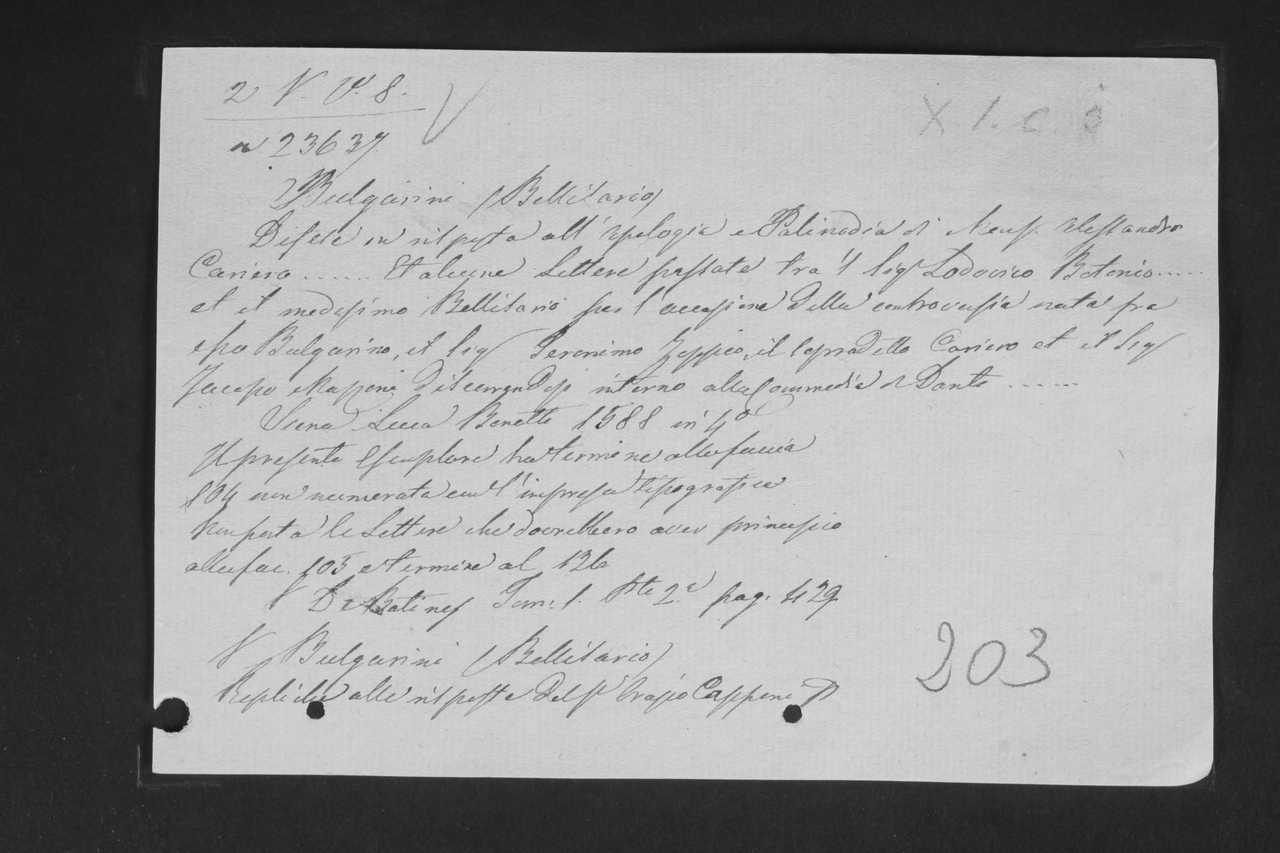 2 V. V. 8.
X. 1. C.
n 23637
Bulgarini (Bellisario)
Difese in risposta all'Apologia e Palinodia di Mons. Alessandro
Cariero ...... Et alcune Lettere passate tra 'l Sigr Lodovico Botonio .....
et il medesimo Bellisario per l'occasione della controversia nata fra
esso Bulgarino, il Sigr Geronimo Zoppio, il sopradetto Cariero et il Sigr
Jacopo Mazzoni discorrendosi intorno alla Commedia di Dante ......
Siena Luca Bonetti 1588 in 4°
Il presente Esemplare ha termine alla faccia
104 non numerata con l'impresa tipografica
le Lettere che dovrebbero aver principio
alla fac. 105 e termine al 136
V De Batines Tom: 1. Pte 2.a pag. 429
V Bulgarini (Bellisario)
Repliche alle risposte del Sr Orazio Capponi
203